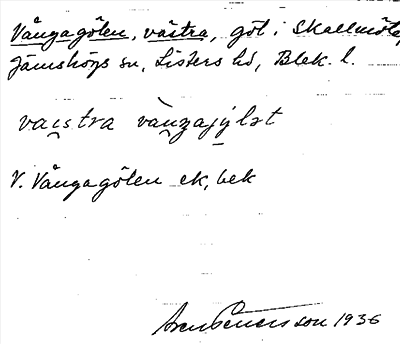 Vångagölen, västra, göl i Skallmöta,
Jämshögs sn, Listers hd, Blek. l.
vaistra vàŋgajylət
V. Vångagölen ek, bek
1936